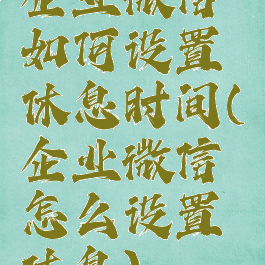 企业微信
如何设置
休息时间(
企业微信
怎么设置
休息)